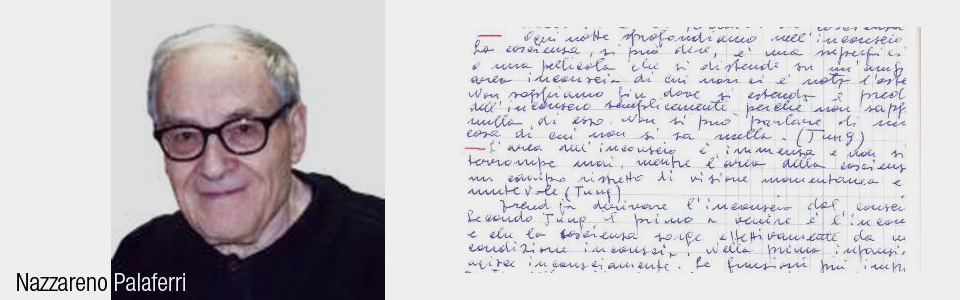 Ogni notte sprofondiamo nell'inconscio
La coscienza, si può dire, è una superfici
o una pellicola che si distende su un'amp
area inconscia di cui non ci è noto l'este
Non sappiamo fin dove si estenda e pred
dell'inconscio semplicemente perché non sapp
nulla di esso. Non si può parlare di
cosa di cui non si sa nulla. (Jung)
L'area dell'inconscio è immensa e non si
mai, mentre l'area della coscienz
un campo di visione momentanea e
(Jung)
Freud fa derivare l'inconscio dal consci
Secondo Jung il primo a venire è l'incon
e che la coscienza sorge effettivamente da un
condizione inconscia. Nella prima infanzi
inconsciamente. Le funzioni più imp
Nazzareno Palaferri